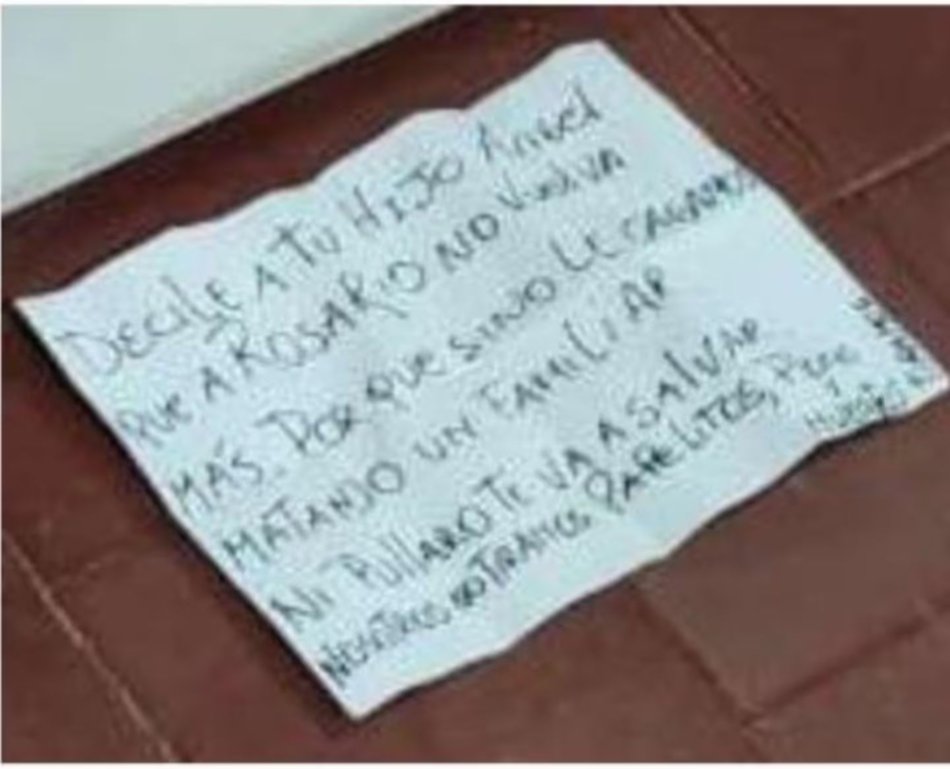 DECILE A TU HIJO Angel
QUE A ROSARIO NO VUELVA
MÁS. POR QUE SINO LE CAGAMOS
MATANDO UN FAMILIAR
NI PULLARO TE VA A SALVAR
NOSOTROS NO TIRAMOS PAPELITOS,